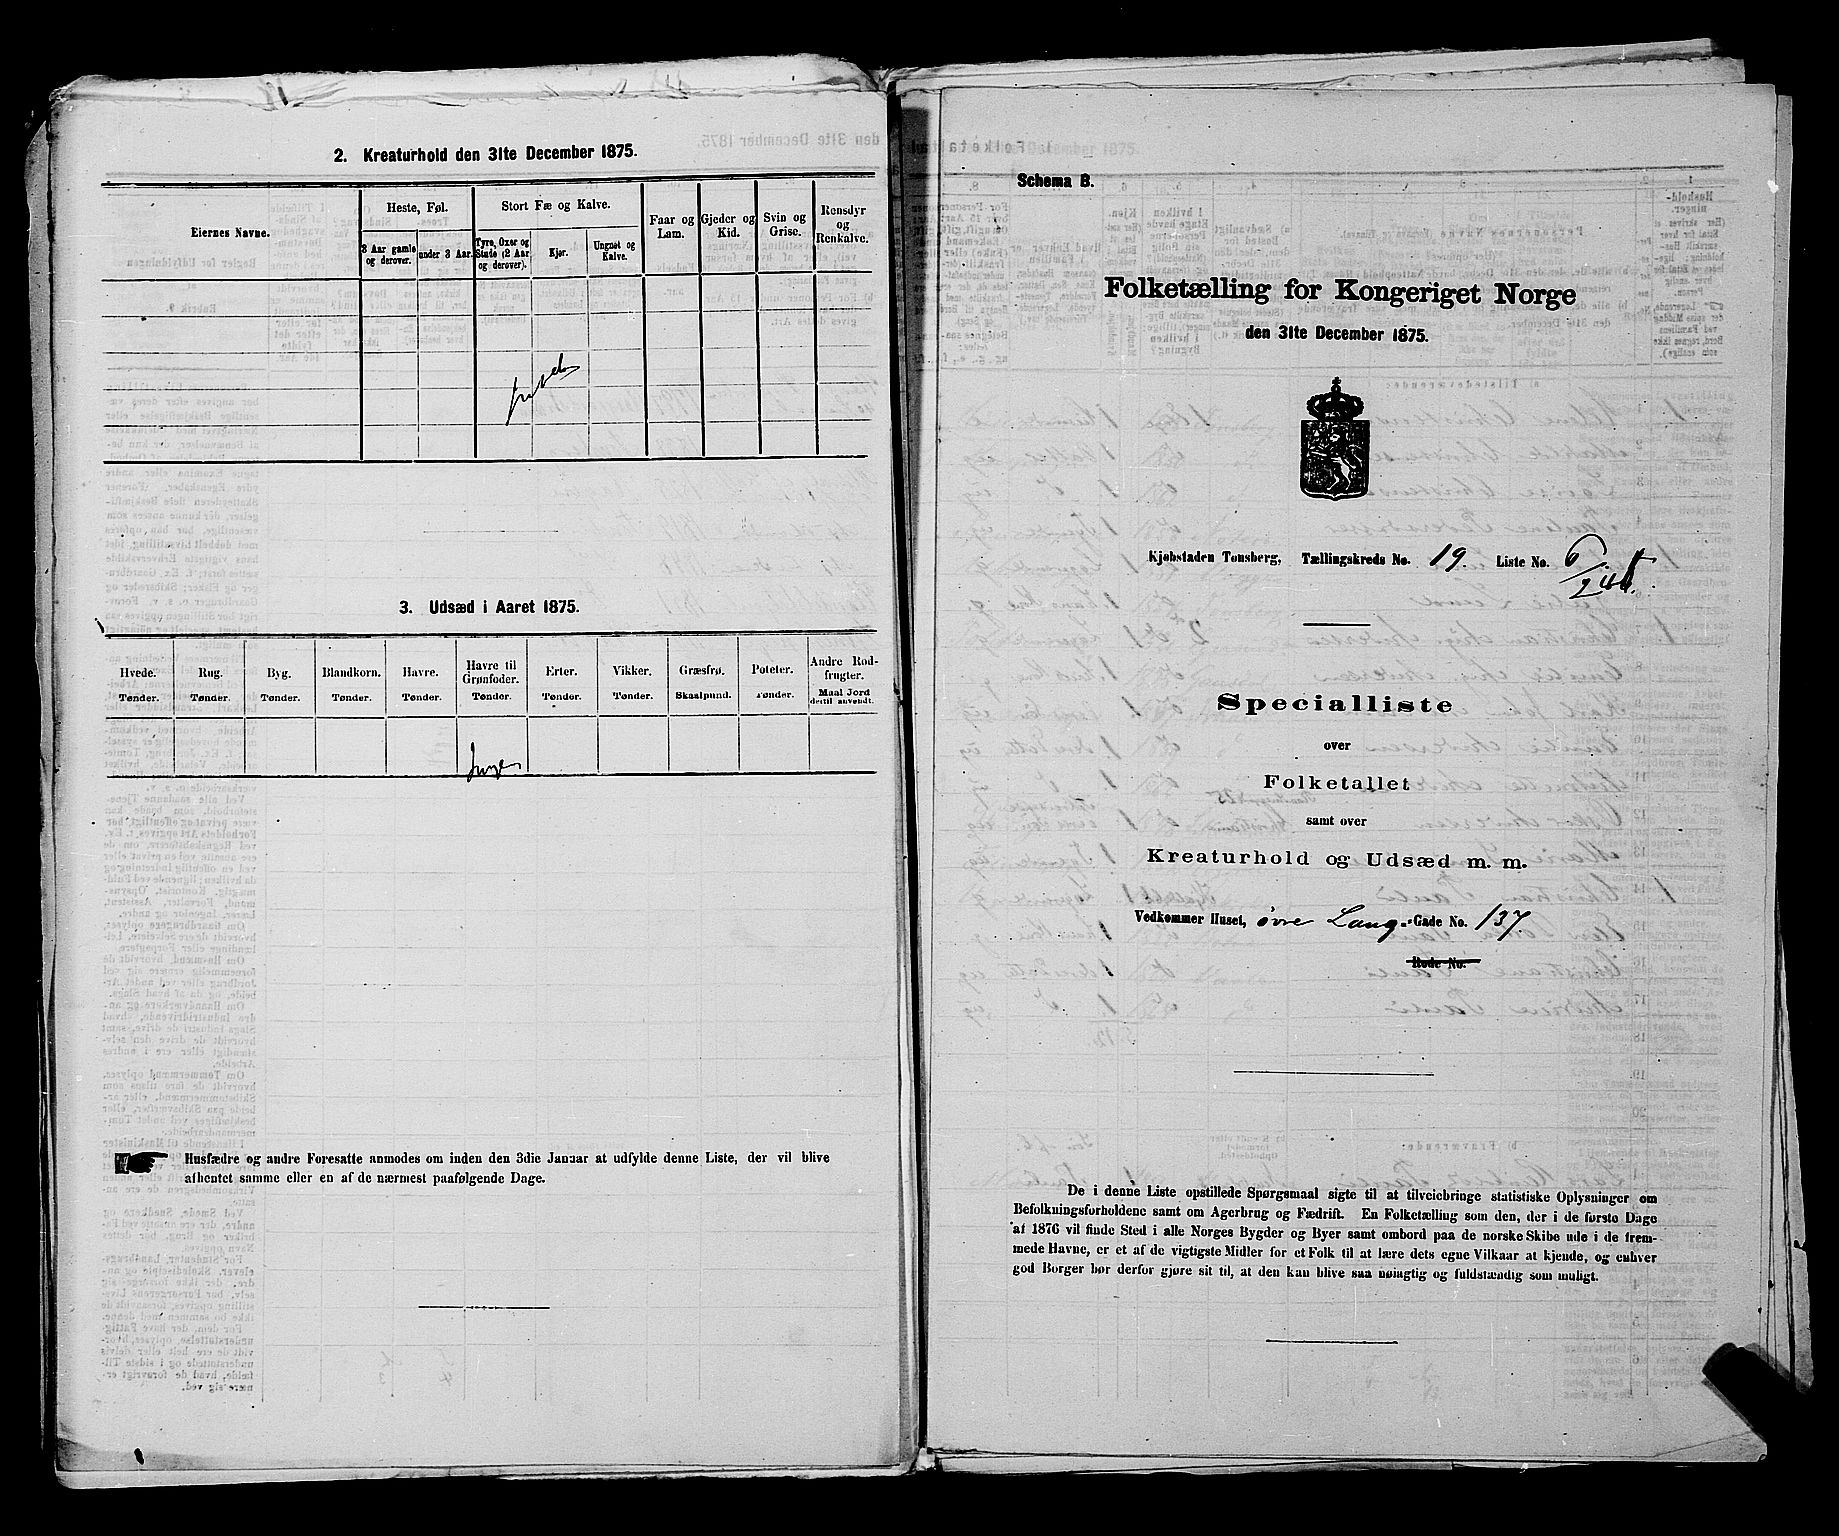 2. Kreaturhold den 31te December 1875.
Eiernes Navne.
Heste, Føl.
3 Aar gamle og derover.
under 3 Aar.
Stort Fæ og Kalve.
Tyre, Oxer og Stude (2 Aar og derover).
Kjør.
Ungnøt og Kalve.
Faar og Lam.
Gjeder og Kid.
Svin og Grise.
Rensdyr og Renkalve.
3. Udsæd i Aaret 1875.
Hvede. Tønder.
Rug. Tønder.
Byg. Tønder.
Blandkorn. Tønder.
Havre. Tønder.
Havre til Grønfoder. Tønder.
Erter. Tønder.
Vikker. Tønder.
Græsfrø. Skaalpund.
Poteter. Tønder.
Andre Rodfrugter. Maal Jord dertil anvendt.
Ingen
Husfædre og andre Foresatte anmodes om inden den 3die Januar at udfylde denne Liste, der vil blive
afhentet samme eller en af de nærmest paafølgende Dage.
Schema B.
Folketælling for Kongeriget Norge
den 31te December 1875.
Kjøbstaden Tønsberg, Tællingskreds No. 19. Liste No. 6
Specialliste
over
Folketallet
samt over
Kreaturhold og Udsæd m. m.
Vedkommer Huset, øvre Lang-Gade No. 137.
Rode No.
De i denne Liste opstillede Spørgsmaal sigte til at tilveiebringe statistiske Oplysninger om
Befolkningsforholdene samt om Agerbrug og Fædrift. En Folketælling som den, der i de første Dage
af 1876 vil finde Sted i alle Norges Bygder og Byer samt ombord paa de norske Skibe ude i de frem-
mede Havne, er et af de vigtigste Midler for et Folk til at lære dets egne Vilkaar at kjende, og enhver
god Borger bør derfor gjøre sit til, at den kan blive saa nøiagtig og fuldstændig som muligt.